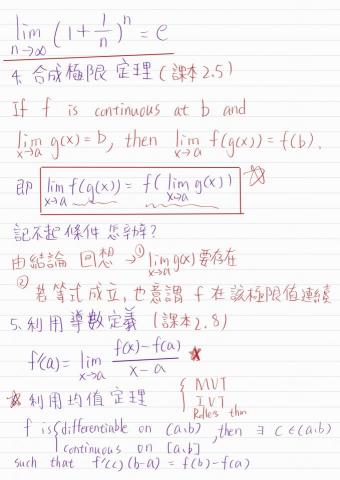 lim n→∞ (1 + 1/n)^n = e
4. 合成極限定理 (課本2.5)
If f is continuous at b and
lim x→a g(x) = b, then lim x→a f(g(x)) = f(b).
即 lim x→a f(g(x)) = f( lim x→a g(x)) ☆
記不起條件怎辦?
由結論回想 → ① lim x→a g(x) 要存在
② 若等式成立, 也意謂 f 在該極限值連續
5. 利用導數定義 (課本2.8)
f'(a) = lim x→a (f(x) - f(a)) / (x - a) ★
☆ 利用均值定理 { MVT
IVT
Rolle's thm
f is { differentiable on (a,b) , then ∃ c ∈ (a,b)
continuous on [a,b]
such that f'(c)(b-a) = f(b) - f(a)